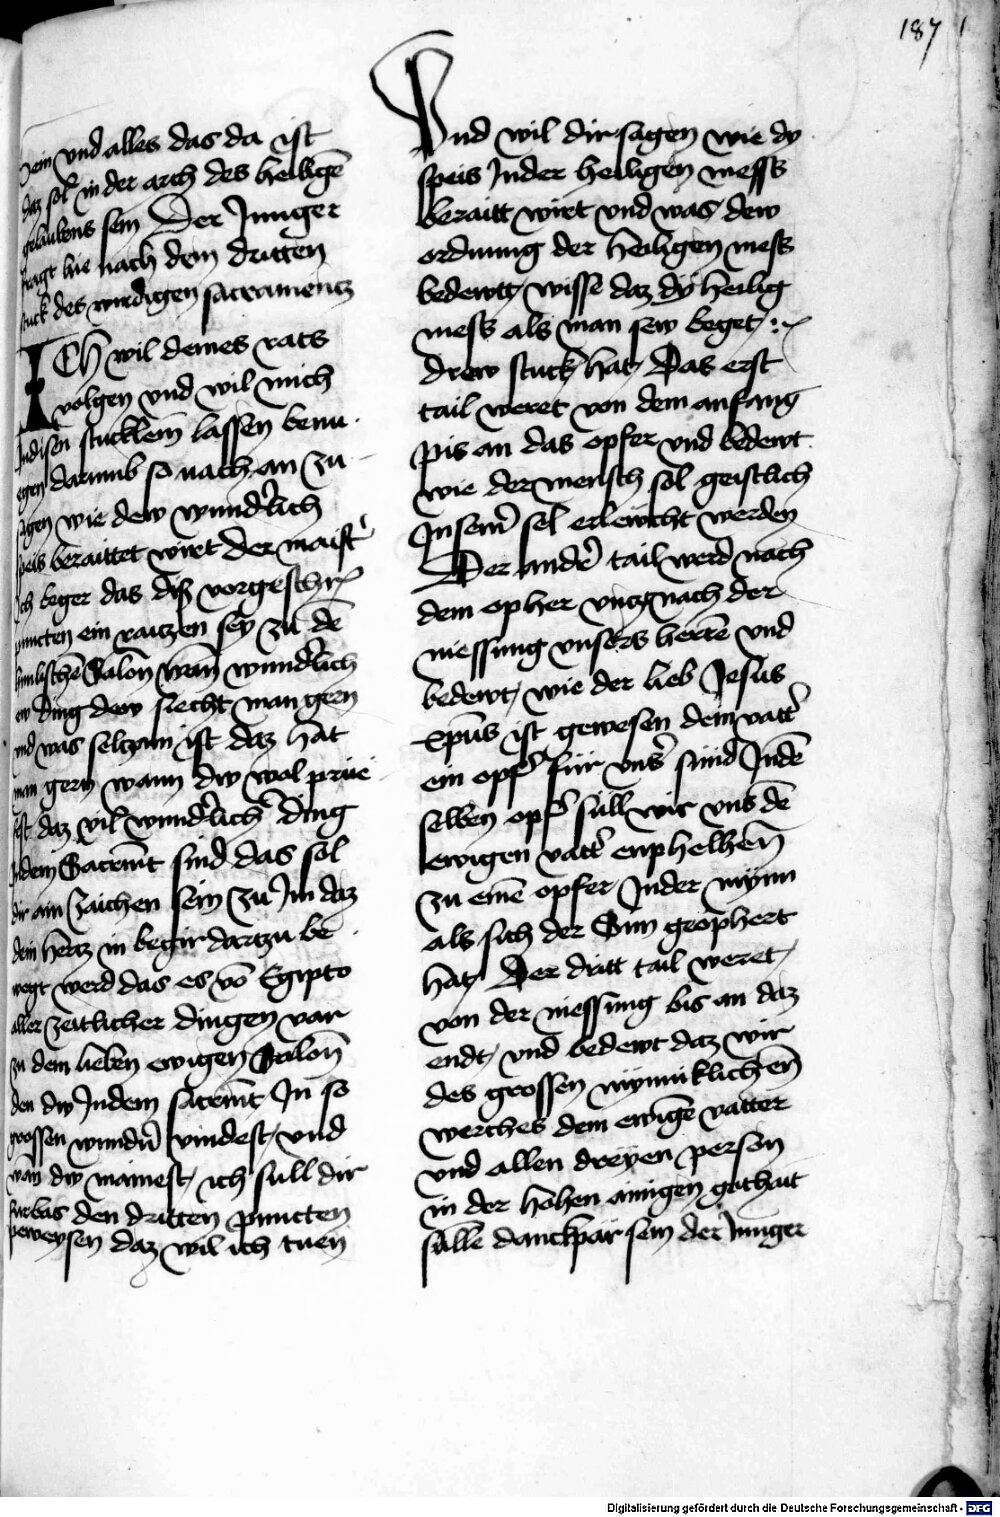 187
sein vnd alles das da ist
daz sol in der arch des heiligē
gelaubens sein Der Junger
fragt hie nach dem dritten
stuck des wirdigen sacramentz
Ich wil deines rats
volgen vnd wil mich
Jn disen stucklein lassen benu
egen darumb so nach an zu
sagen wie dew wundˀlich
speis beraittet wiret Der maistˀ
Ich beger das diß vorgeschrˀ
puncten ein raitzen sey zu dē
himlischē Salon wan wundˀlich
ew ding dew siecht man gern
vnd was seltzam ist daz hat
man gern wann dw wol prue
fest daz vil wundˀlichˀ ding
Jn dem Sacramt sind das sol
dir ain zaichen sein zu Jm daz
dein hertz in begir dartzu be
wegt werd das es vō Egipto
aller zeitlicher dingen var
zu dem lieben ewigen Salon
den dw Jn dem sacramt Jn so
grossen wundˀn vindest vnd
wan dw mainest ich sull dir
furbas den dritten puncten
peweysen daz wil ich tuen
Vnd wil dir sagen wie dy
speis Jn der heiligen mess
beraitt wirt vnd was dew
ordnung der heiligen mess
bedewtt wisse daz dÿ heilig
mess als man sew beget
drew stuck hat Das erst
tail weret von dem anfang
pis an das opfer vnd bedewt
wie der mensch sol geistlich
Jn seinˀ sel erlewcht werden
Der andˀ tail werd nach
dem opher vntz nach der
niessung vnsers herrē vnd
bedewt wie der lieb Jesus
Xpūs ist gewesen dem vattˀ
ein opfˀ für vnsˀ sünd Jn dē
selben opfˀ sull wir vns dē
ewigen vattˀ enphelhen
zu einē opfer Jn der mynn
als sich der Sun geophert
hat Der dritt tail weret
von der niessung bis an daz
endt vnd bedewt daz wir
des grossen mynniklichen
werches dem ewigē vatter
vnd allen dreyen person
in der hohen ainigen gothait
sullē danckpar sein der Junger
Digitalisierung gefördert durch die Deutsche Forschungsgemeinschaft - DFG